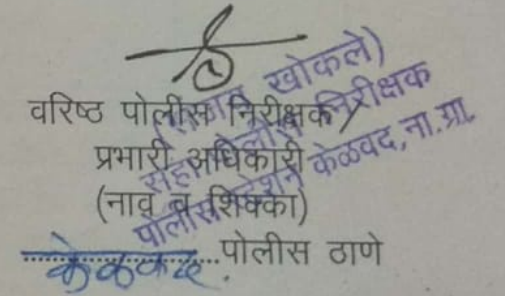 वरिष्ठ पोलीस निरीक्षक/
प्रभारी अधिकारी
(नाव व शिक्का)
केळवद पोलीस ठाणे
खोकले)
सहा. पोलीस निरीक्षक
पोलीस स्टेशन केळवद, ना.ग्रा.